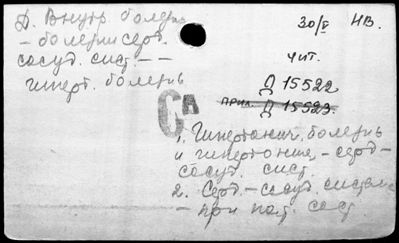 Д. Внутр болезнь
30/V НВ.
- болезни серд.
сосуд. сист. - -
чит.
гиперт. болезнь
Д 15522
прил. Д 15523.
Са
1. Гипертонич. болезнь
и гипертония - серд-
сосуд. сист.
2. Серд. - сосуд. система
- при пат. сост